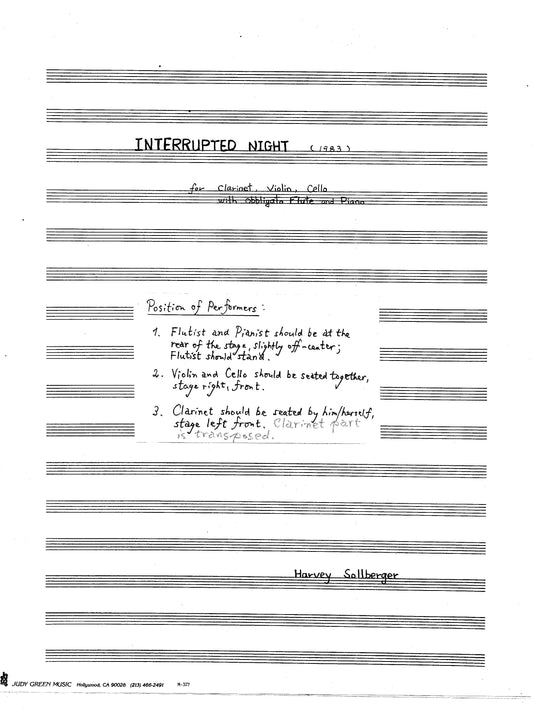 INTERRUPTED NIGHT (1983)
for Clarinet, Violin, Cello
with Obbligato Flute and Piano
Position of Performers:
1. Flutist and Pianist should be at the
rear of the stage, slightly off-center;
Flutist should stand.
2. Violin and Cello should be seated together,
stage right, front.
3. Clarinet should be seated by him/herself,
stage left front. Clarinet part
is transposed.
Harvey Sollberger
JUDY GREEN MUSIC Hollywood, CA 90028 (213) 466-2491